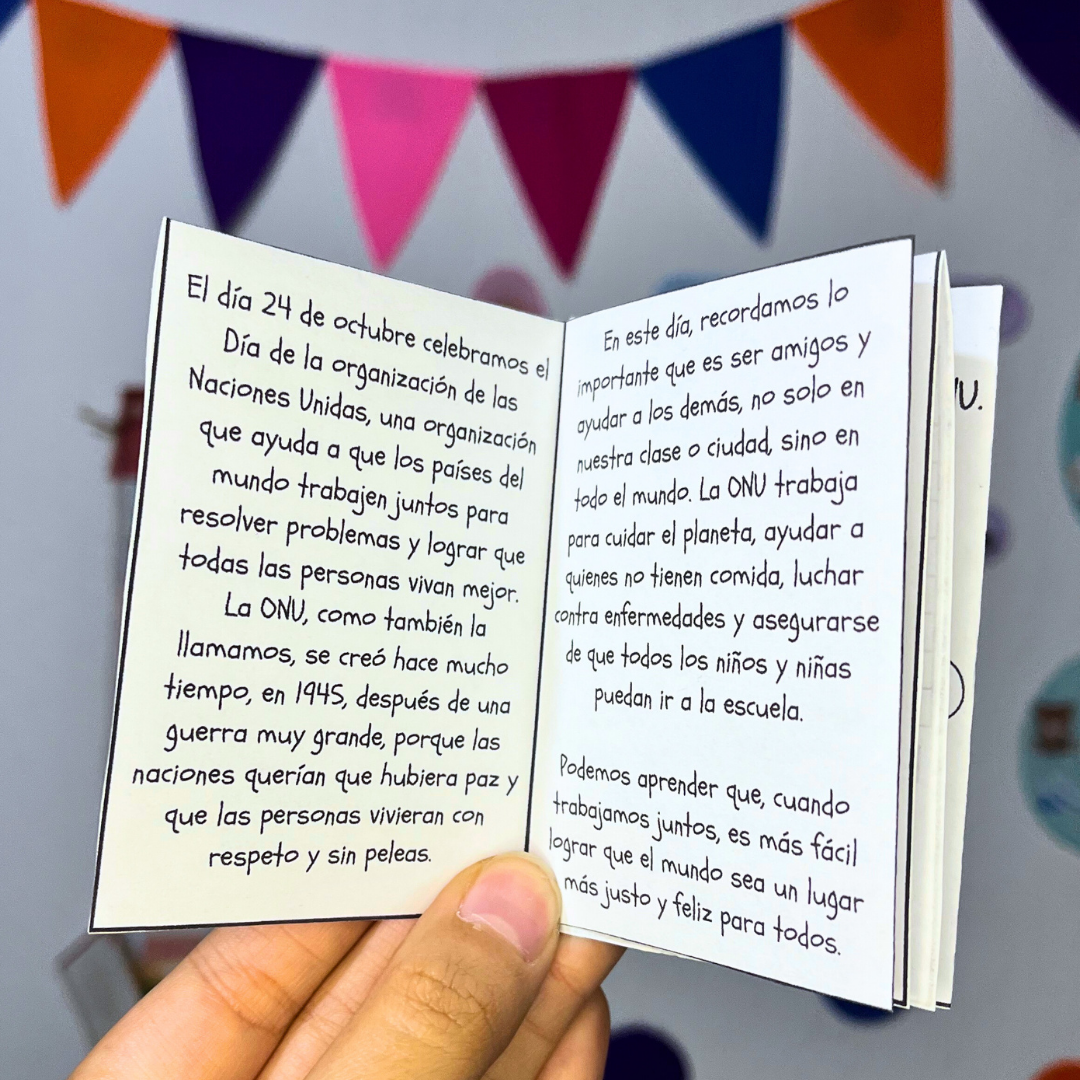 El día 24 de octubre celebramos el
Día de la organización de las
Naciones Unidas, una organización
que ayuda a que los países del
mundo trabajen juntos para
resolver problemas y lograr que
todas las personas vivan mejor.
La ONU, como también la
llamamos, se creó hace mucho
tiempo, en 1945, después de una
guerra muy grande, porque las
naciones querían que hubiera paz y
que las personas vivieran con
respeto y sin peleas.
En este día, recordamos lo
importante que es ser amigos y
ayudar a los demás, no solo en
nuestra clase o ciudad, sino en
todo el mundo. La ONU trabaja
para cuidar el planeta, ayudar a
quienes no tienen comida, luchar
contra enfermedades y asegurarse
de que todos los niños y niñas
puedan ir a la escuela.
Podemos aprender que, cuando
trabajamos juntos, es más fácil
lograr que el mundo sea un lugar
más justo y feliz para todos.